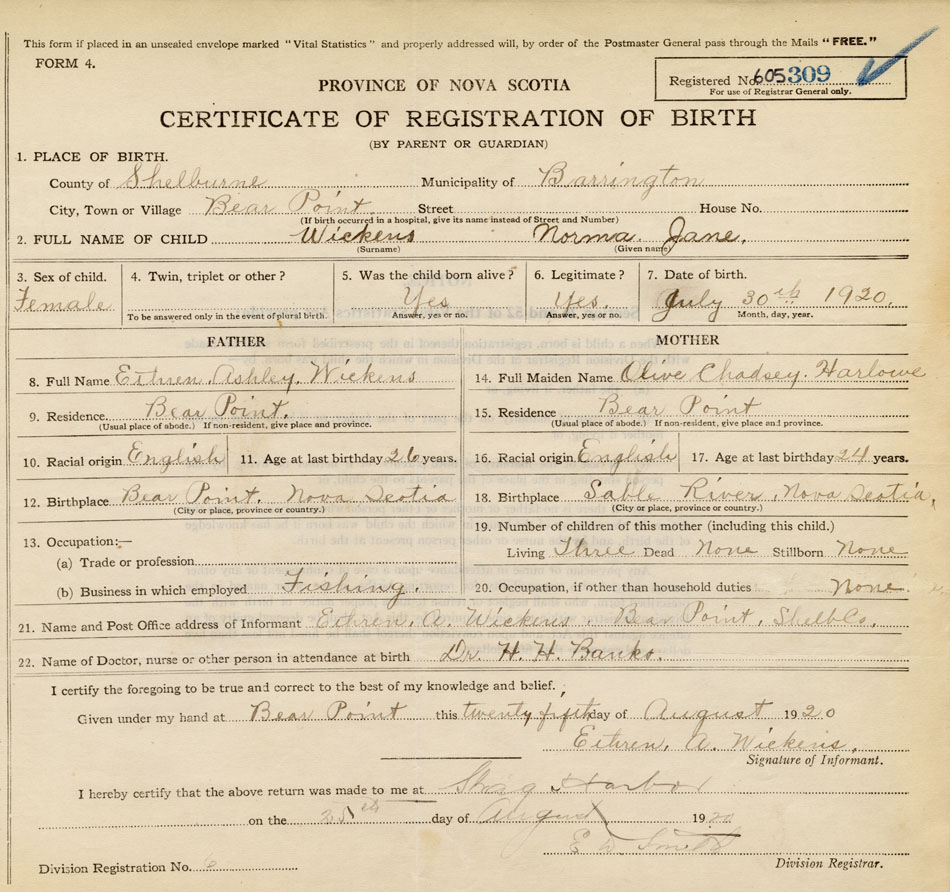 This form if placed in an unsealed envelope marked "Vital Statistics" and properly addressed will, by order of the Postmaster General pass through the Mails "FREE."
FORM 4.
Registered No. 605309
For use of Registrar General only.
PROVINCE OF NOVA SCOTIA
CERTIFICATE OF REGISTRATION OF BIRTH
(BY PARENT OR GUARDIAN)
1. PLACE OF BIRTH.
County of Shelburne Municipality of Barrington
City, Town or Village Bear Point Street House No.
(If birth occurred in a hospital, give its name instead of Street and Number)
2. FULL NAME OF CHILD Wickens Norma Jane.
(Surname) (Given name)
3. Sex of child. 4. Twin, triplet or other? 5. Was the child born alive? 6. Legitimate? 7. Date of birth.
Female Yes Yes. July 30th 1920.
To be answered only in the event of plural birth. Answer, yes or no. Answer, yes or no. Month, day, year.
FATHER MOTHER
8. Full Name Ethren Ashley Wickens 14. Full Maiden Name Olive Chadsey Harlowe
9. Residence Bear Point. 15. Residence Bear Point
(Usual place of abode.) If non-resident, give place and province. (Usual place of abode.) If non-resident, give place and province.
10. Racial origin English 11. Age at last birthday 26 years. 16. Racial origin English 17. Age at last birthday 24 years.
12. Birthplace Bear Point. Nova Scotia 18. Birthplace Sable River, Nova Scotia,
(City or place, province or country.) (City or place, province or country.)
19. Number of children of this mother (including this child.)
13. Occupation:—
Living Three Dead None Stillborn None
(a) Trade or profession
(b) Business in which employed Fishing. 20. Occupation, if other than household duties None
21. Name and Post Office address of Informant Ethren. A. Wickens. Bear Point, Shelb Co.
22. Name of Doctor, nurse or other person in attendance at birth Dr. H. H. Banks.
I certify the foregoing to be true and correct to the best of my knowledge and belief.
Given under my hand at Bear Point this twenty fifth day of August 1920
Ethren. A. Wickens.
Signature of Informant.
I hereby certify that the above return was made to me at Shag Harbor
on the 25th day of August 1920
E D Smith
Division Registration No. Division Registrar.